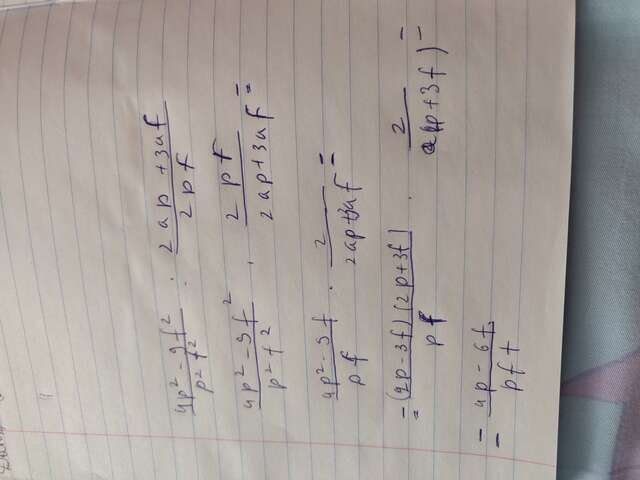 4p² - 9f² / p²f² : 2ap + 3af / 2pf
4p² - 9f² / p²f² · 2pf / 2ap + 3af =
4p² - 9f / pf · 2 / 2ap + 3af =
= (2p - 3f)(2p + 3f) / pf · 2 / a(2p + 3f) =
= 4p - 6f / pf